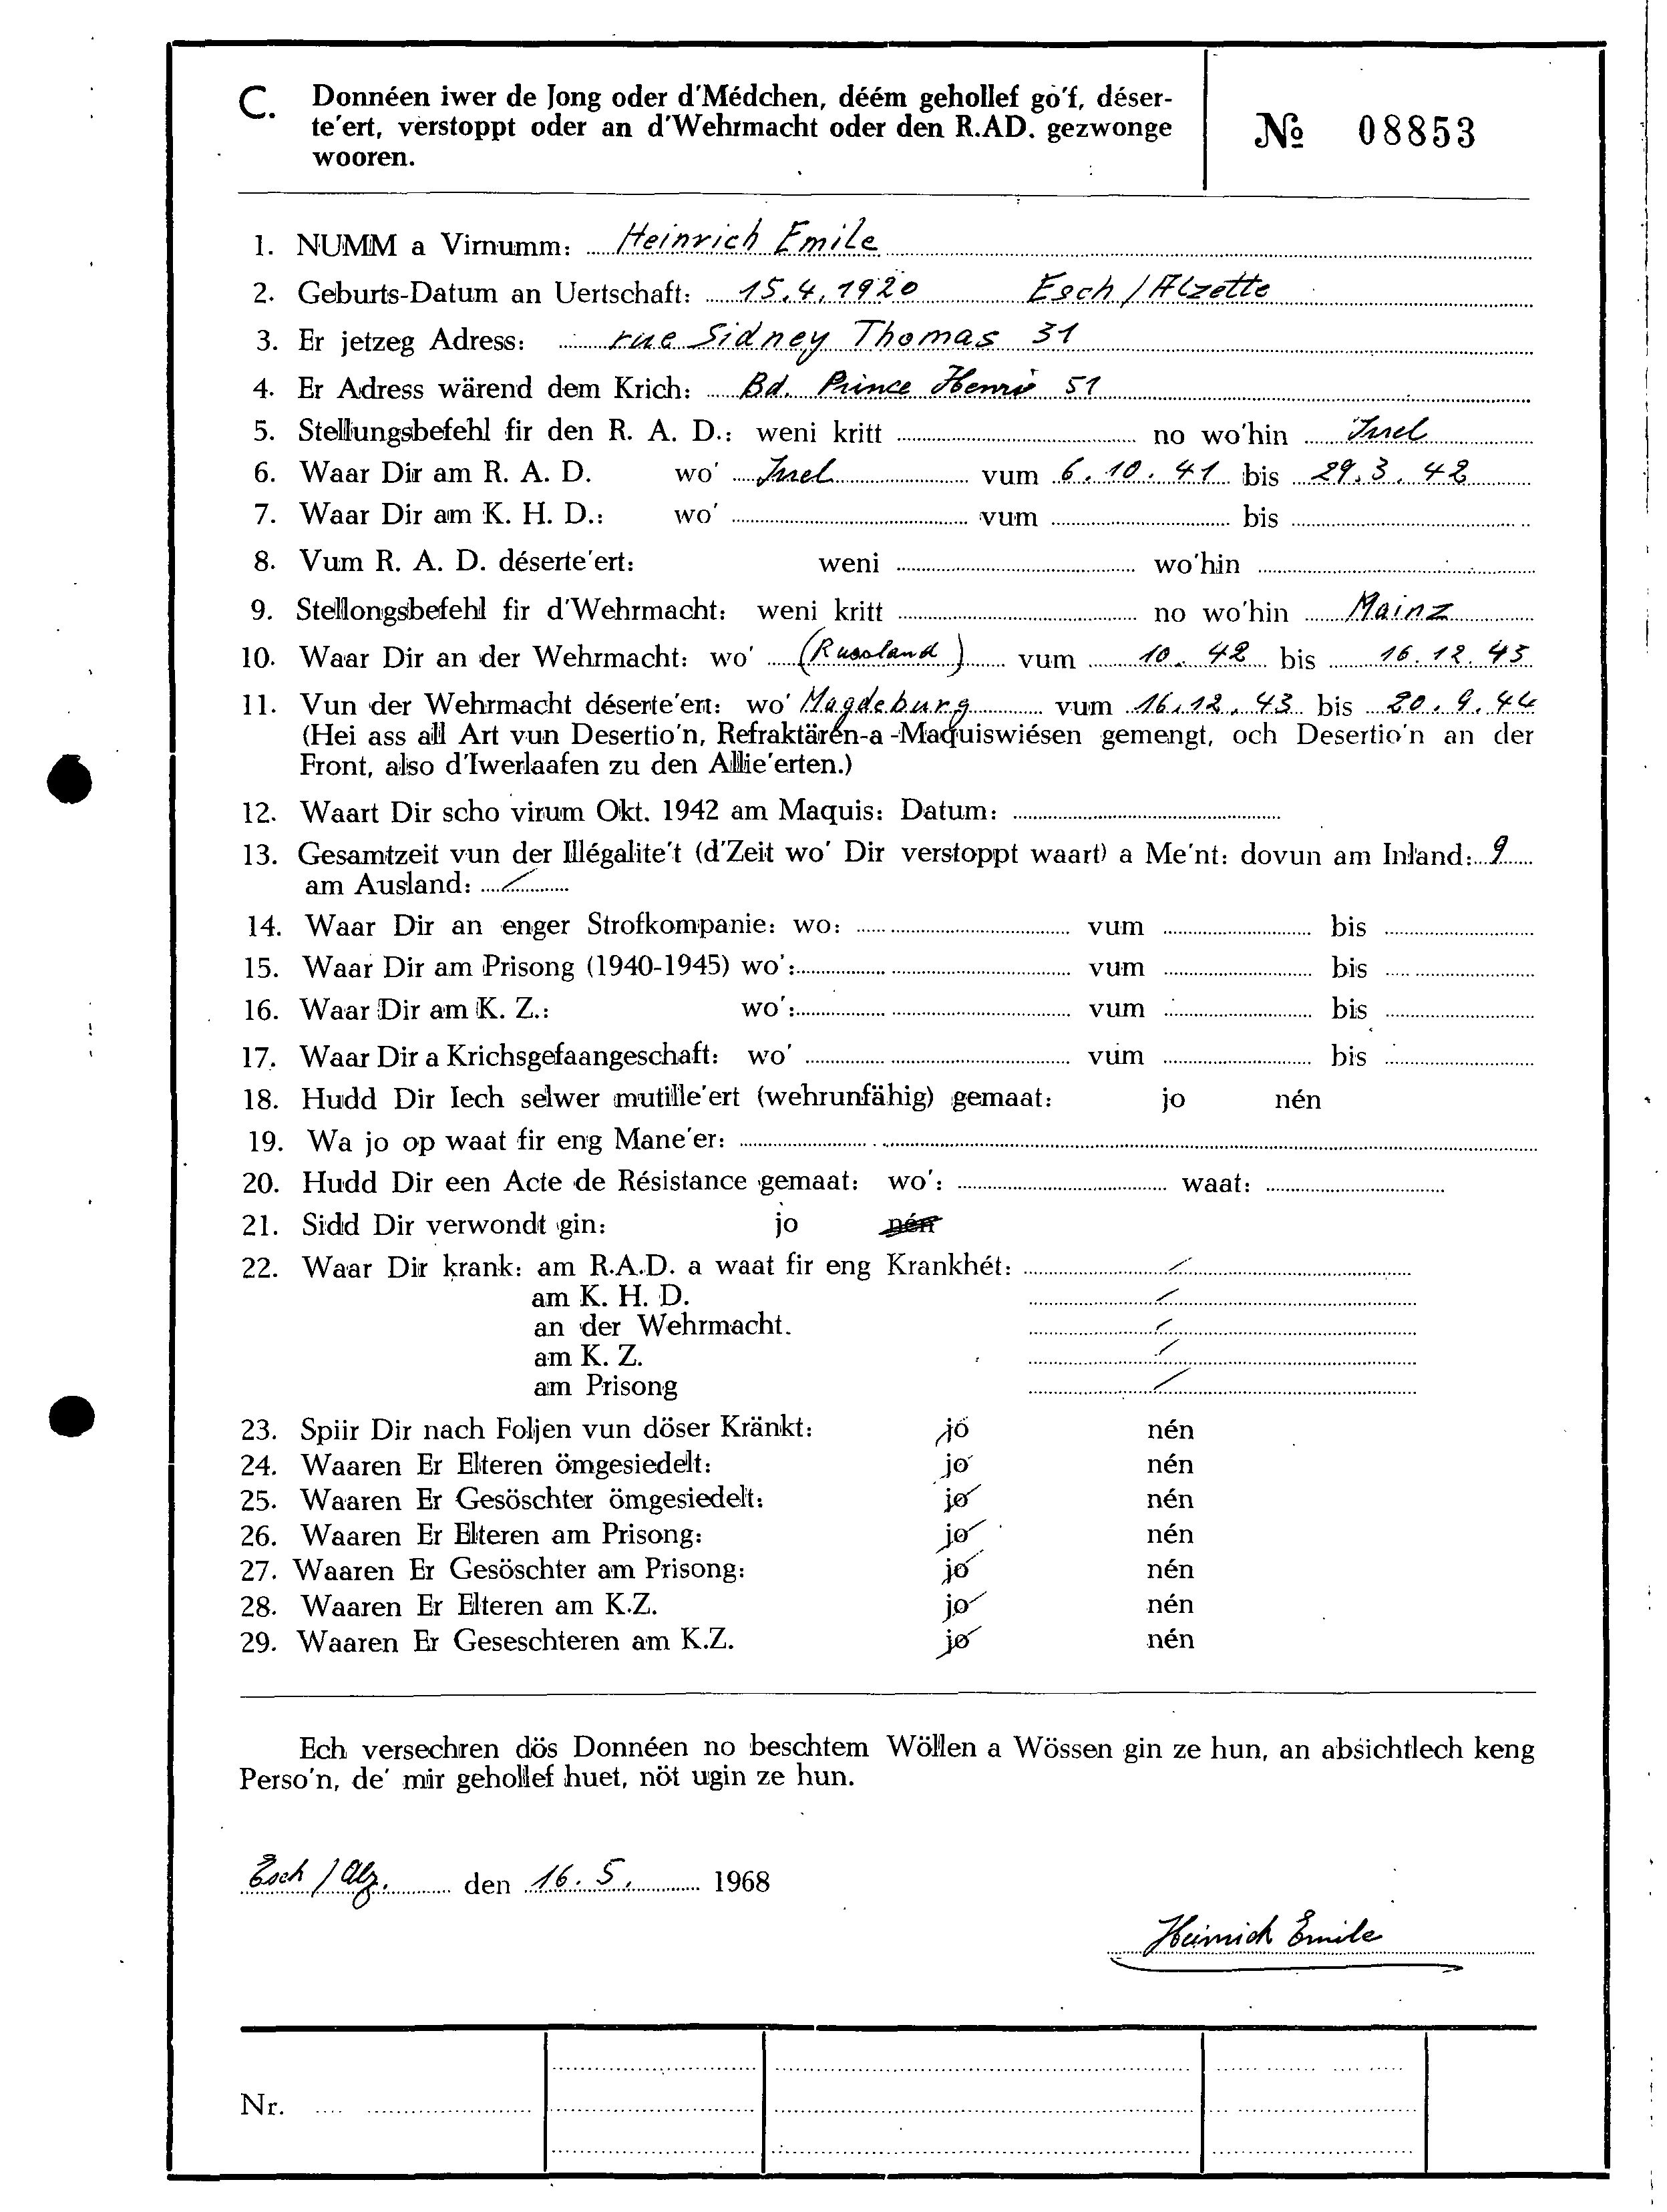 C. Donnéen iwer de Jong oder d'Médchen, déém gehollef go'f, déser-
te'ert, verstoppt oder an d'Wehrmacht oder den R.AD. gezwonge
wooren.
№ 08853
1. NUMM a Virnumm: Heinrich Emile
2. Geburts-Datum an Uertschaft: 15.4.1920 Esch/Alzette
3. Er jetzeg Adress: rue Sidney Thomas 31
4. Er Adress wärend dem Krich: Bd. Prince Henri 51
5. Stellungsbefehl fir den R. A. D.: weni kritt no wo'hin Insel
6. Waar Dir am R. A. D. wo' Insel vum 6.10.41 bis 29.3.42
7. Waar Dir am K. H. D.: wo' vum bis
8. Vum R. A. D. déserte'ert: weni wo'hin
9. Stellongsbefehl fir d'Wehrmacht: weni kritt no wo'hin Mainz
10. Waar Dir an der Wehrmacht: wo' (Russland) vum 10. 42 bis 16.12.43
11. Vun der Wehrmacht déserte'ert: wo' Magdeburg vum 16.12.43 bis 20.9.44
(Hei ass all Art vun Desertio'n, Refraktären-a -Maquiswiésen gemengt, och Desertio'n an der
Front, also d'Iwerlaafen zu den Allie'erten.)
12. Waart Dir scho virum Okt. 1942 am Maquis: Datum:
13. Gesamtzeit vun der Illégalite't (d'Zeit wo' Dir verstoppt waart) a Me'nt: dovun am Inland: 9
am Ausland: /
14. Waar Dir an enger Strofkompanie: wo: vum bis
15. Waar Dir am Prisong (1940-1945) wo': vum bis
16. Waar Dir am K. Z.: wo': vum bis
17. Waar Dir a Krichsgefaangeschaft: wo' vum bis
18. Hudd Dir Iech selwer mutille'ert (wehrunfähig) gemaat: jo nén
19. Wa jo op waat fir eng Mane'er:
20. Hudd Dir een Acte de Résistance gemaat: wo': waat:
21. Sidd Dir verwondt gin: jo nén
22. Waar Dir krank: am R.A.D. a waat fir eng Krankhét: /
am K. H. D. /
an der Wehrmacht. /
am K. Z. /
am Prisong /
23. Spiir Dir nach Foljen vun döser Kränkt: jo nén
24. Waaren Er Elteren ömgesiedelt: jo nén
25. Waaren Er Gesöschter ömgesiedelt: jo nén
26. Waaren Er Elteren am Prisong: jo nén
27. Waaren Er Gesöschter am Prisong: jo nén
28. Waaren Er Elteren am K.Z. jo nén
29. Waaren Er Geseschteren am K.Z. jo nén
Ech versechren dös Donnéen no beschtem Wöllen a Wössen gin ze hun, an absichtlech keng
Perso'n, de' mir gehollef huet, nöt ugin ze hun.
Esch/Alz. den 16. 5. 1968
Heinrich Emile
Nr.